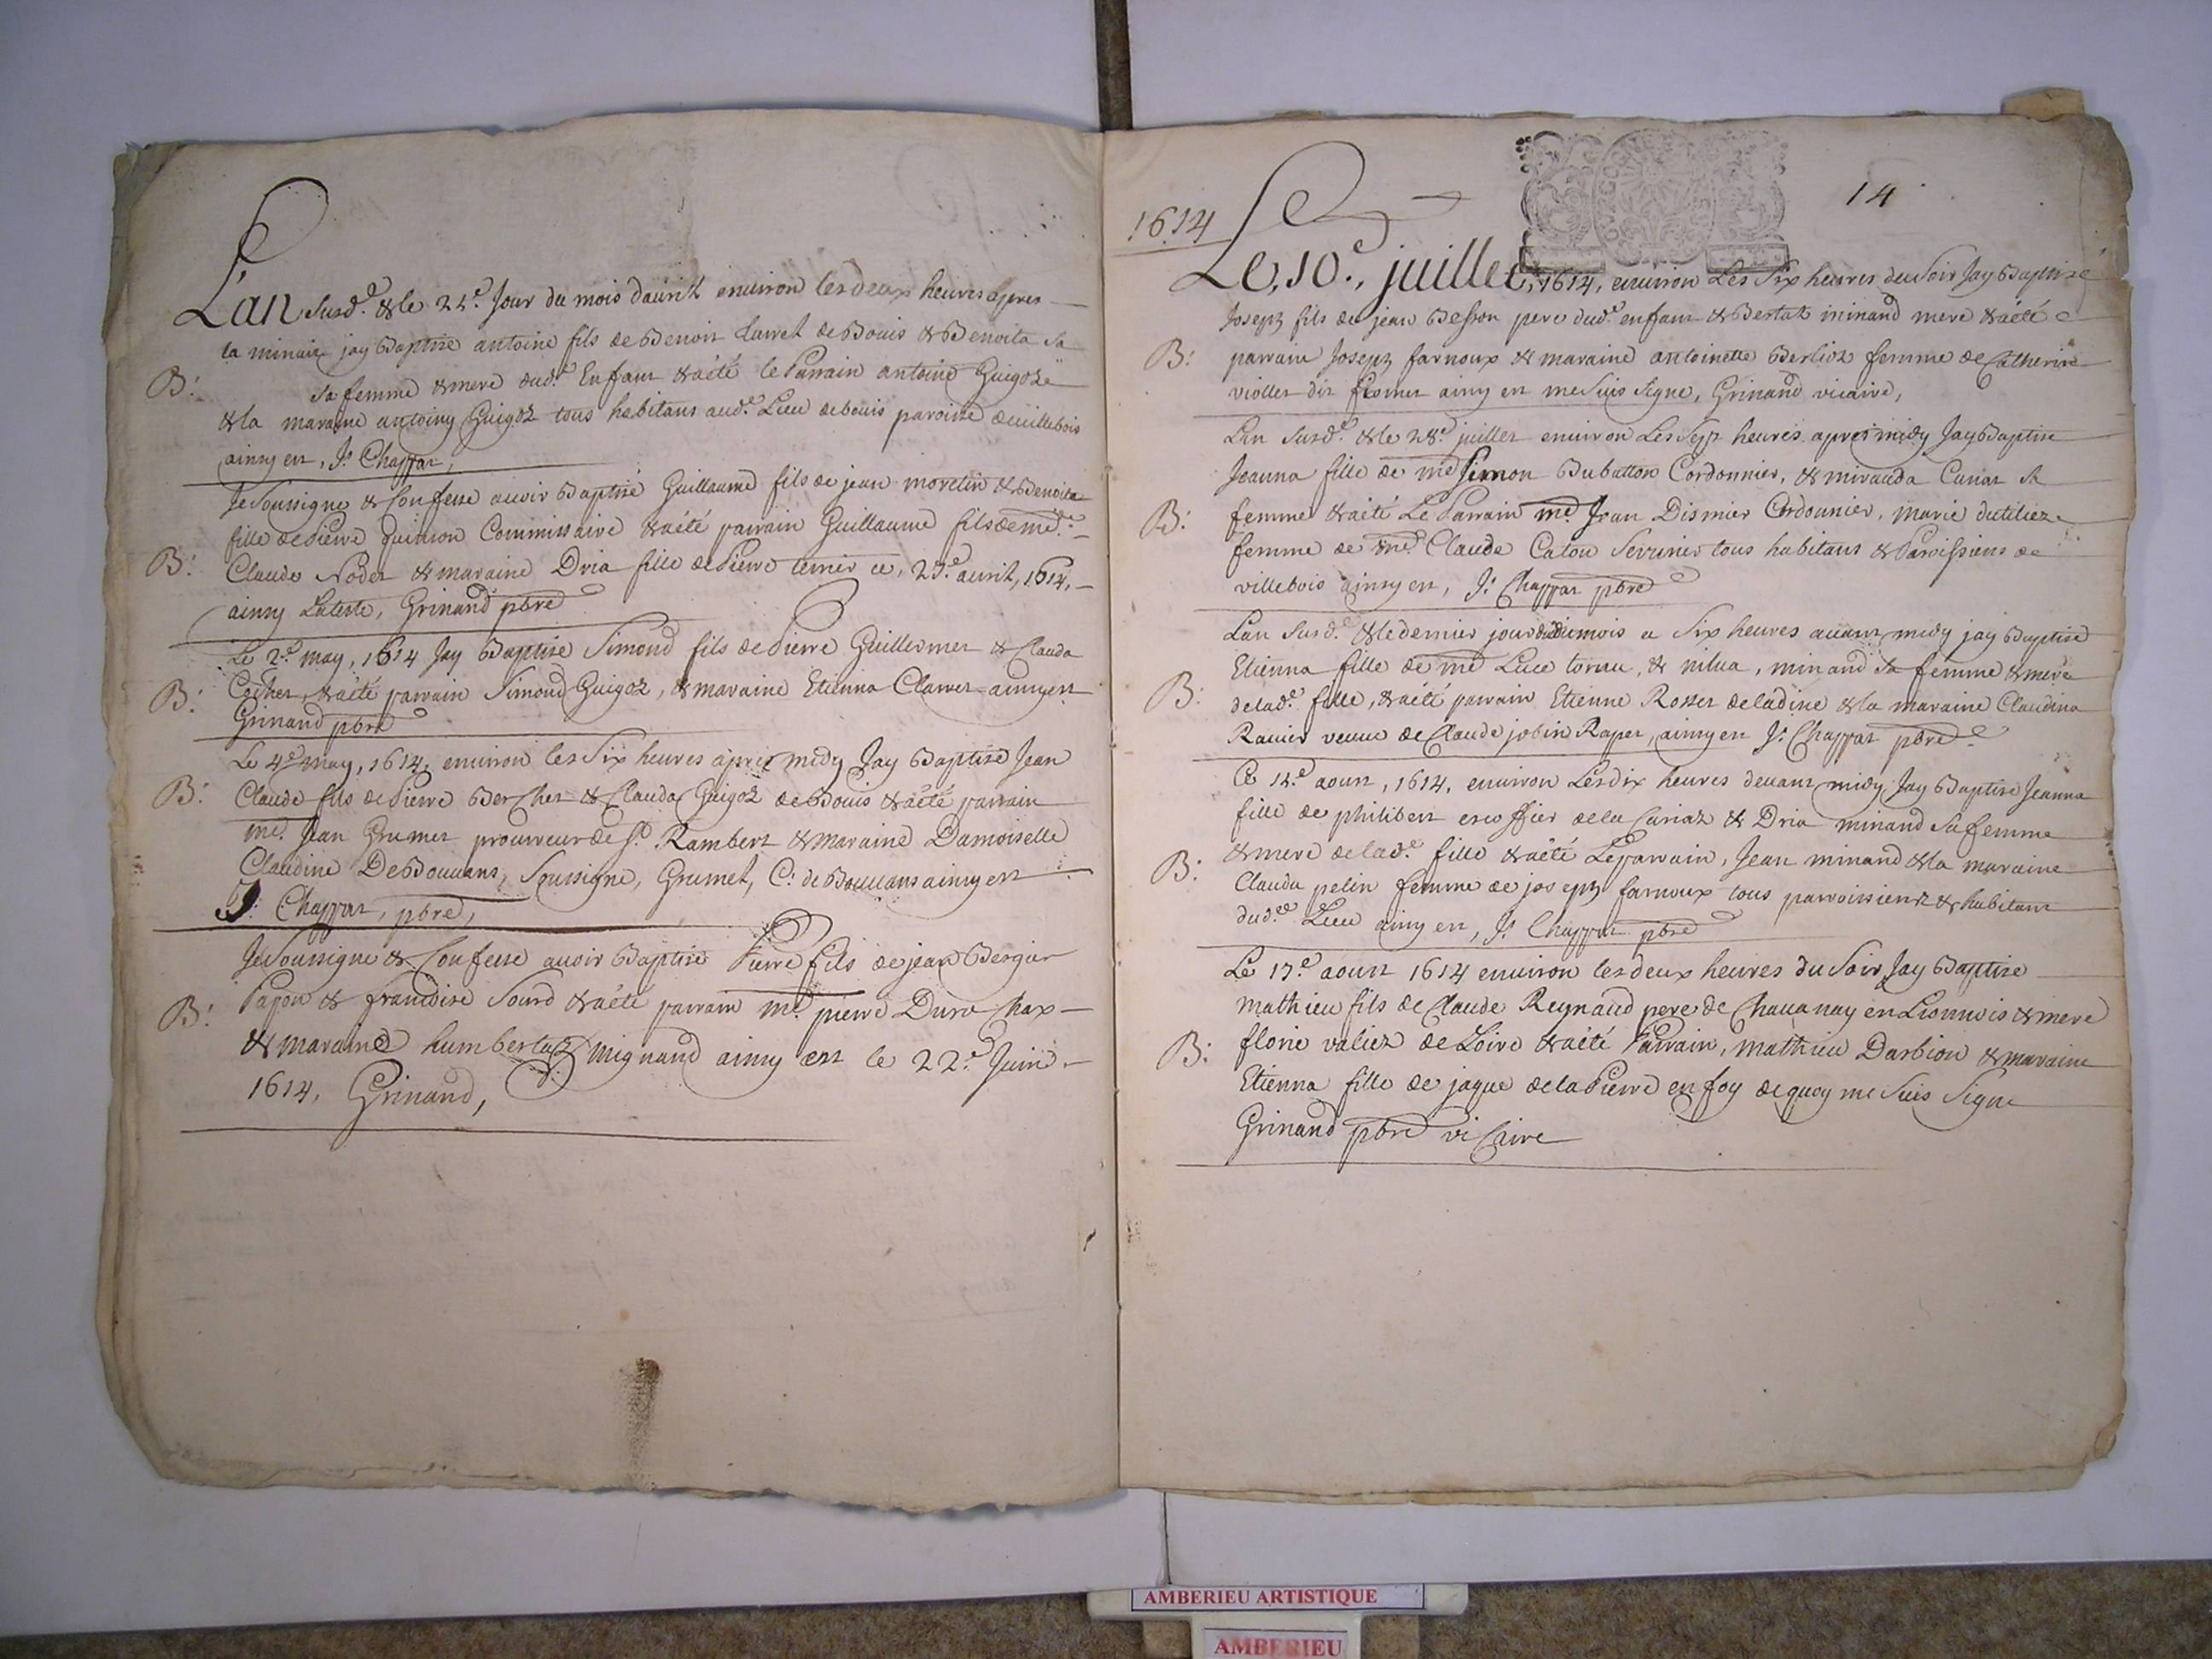 L'an susd.e & le 22.e jour du mois d'auril enuiron les deux heures apres
la minuix jay Baptisé antoine fils de Benoit Clarret de Bouis & Benoita sa
B: sa femme & mere dud.t Enfant & aété le Parrain antoine Guigoz
& la maraine antoiny Guigoz tous habitans aud.e Lieu de bouis paroisse de uillebois
ainsy est, J. Chappat,
Je soussigne & Confesse auoir Baptisé Guillaume fils de jean moretin & Benoita
fille de Pierre quinson Commissaire & aété parrain Guillaume fils de me.
B: Claude Nodet & maraine Dria fille de Pierre ternier ce, 25.e auril, 1614,
ainsy L'ateste, Grinand pbre
Le 2.e may, 1614 Jay Baptisé Simond fils de Pierre Guillermet & Clauda
B: Cochet, & aété parrain Simond Guigoz, & maraine Etienna Clarret ainsy est
Grinand pbre
Le 4.e may, 1614, enuiron les Six heures après midy Jay Baptisé Jean
B: Claude fils de Pierre Berchet & Clauda Guigoz de Bouis & aété parrain
me. Jean Grumet procureur de St. Rambert & maraine Damoiselle
Claudine De Bouuans, Soussigne, Grumet, C: de Bouuans ainsy est
J. Chappat, pbre,
Je Soussigne & Confesse auoir Baptisé Pierre fils de jean Bergier
B: Papon & francoise Sourd & aété parrain me. pierre Dura Chax
& maraine humbertaz mignand ainsy est le 22.e Juin
1614, Grinand,
14
1614
Le, 10.e, juillet, 1614, enuiron Les Six heures du Soir Jay Baptisé
Josepz fils de jean Besson pere dud.t enfant & Bertaz minand mere & aété
B: parrain Josepz farnoux & maraine antoinette Berlioz femme de Catherin
viollet dit ainsy est me Suis Signe, Grinand vicaire,
Lan Susd.e & le 28.e juillet enuiron Les Sept heures apres midy Jay Baptisé
Jeanna fille de me Simon Dubatton Cordonnier, & mirauda Curiat sa
B: femme & aété Le Parrain me. Jean Dismier Cordonnier, marie dutiliez
femme de me. Claude Caton Serrurier tous habitans & Paroissiens de
villebois ainsy est, J. Chappat pbre
Lan Susd.e & le dernier jour dudit mois a Six heures auant midy jay Baptisé
Etienna fille de me Luce tornu, & nilua, minand sa femme & mere
B: de lad.e fille, & aété parrain Etienne Rosset de ladine & la maraine Claudina
Rauier veuue de Claude jobin Rapet, ainsy est J. Chappat pbre
Ce 14.e aoust, 1614, enuiron Les dix heures deuant midy Jay Baptisé Jeanna
fille de philibert escoffier de la Curiaz & Dria minand Sa femme
B: & mere de lad.e fille & aété Le parrain, Jean minand & la maraine
Clauda pelin femme de josepz farnoux tous parroissienz & habitant
dud.e Lieu ainsy est, J. Chappat pbre
Le 17.e aoust 1614 enuiron les deux heures du Soir Jay Baptisé
mathieu fils de Claude Reynaud pere de Chauanay en Lionnois & mere
B: florie valiez de Loire & aété Parrain, mathieu Darbion & maraine
Etienna fille de jaque de la Pierre en foy de quoy me Suis Signe
Grinand pbre viCaire
AMBERIEU ARTISTIQUE
AMBERIEU